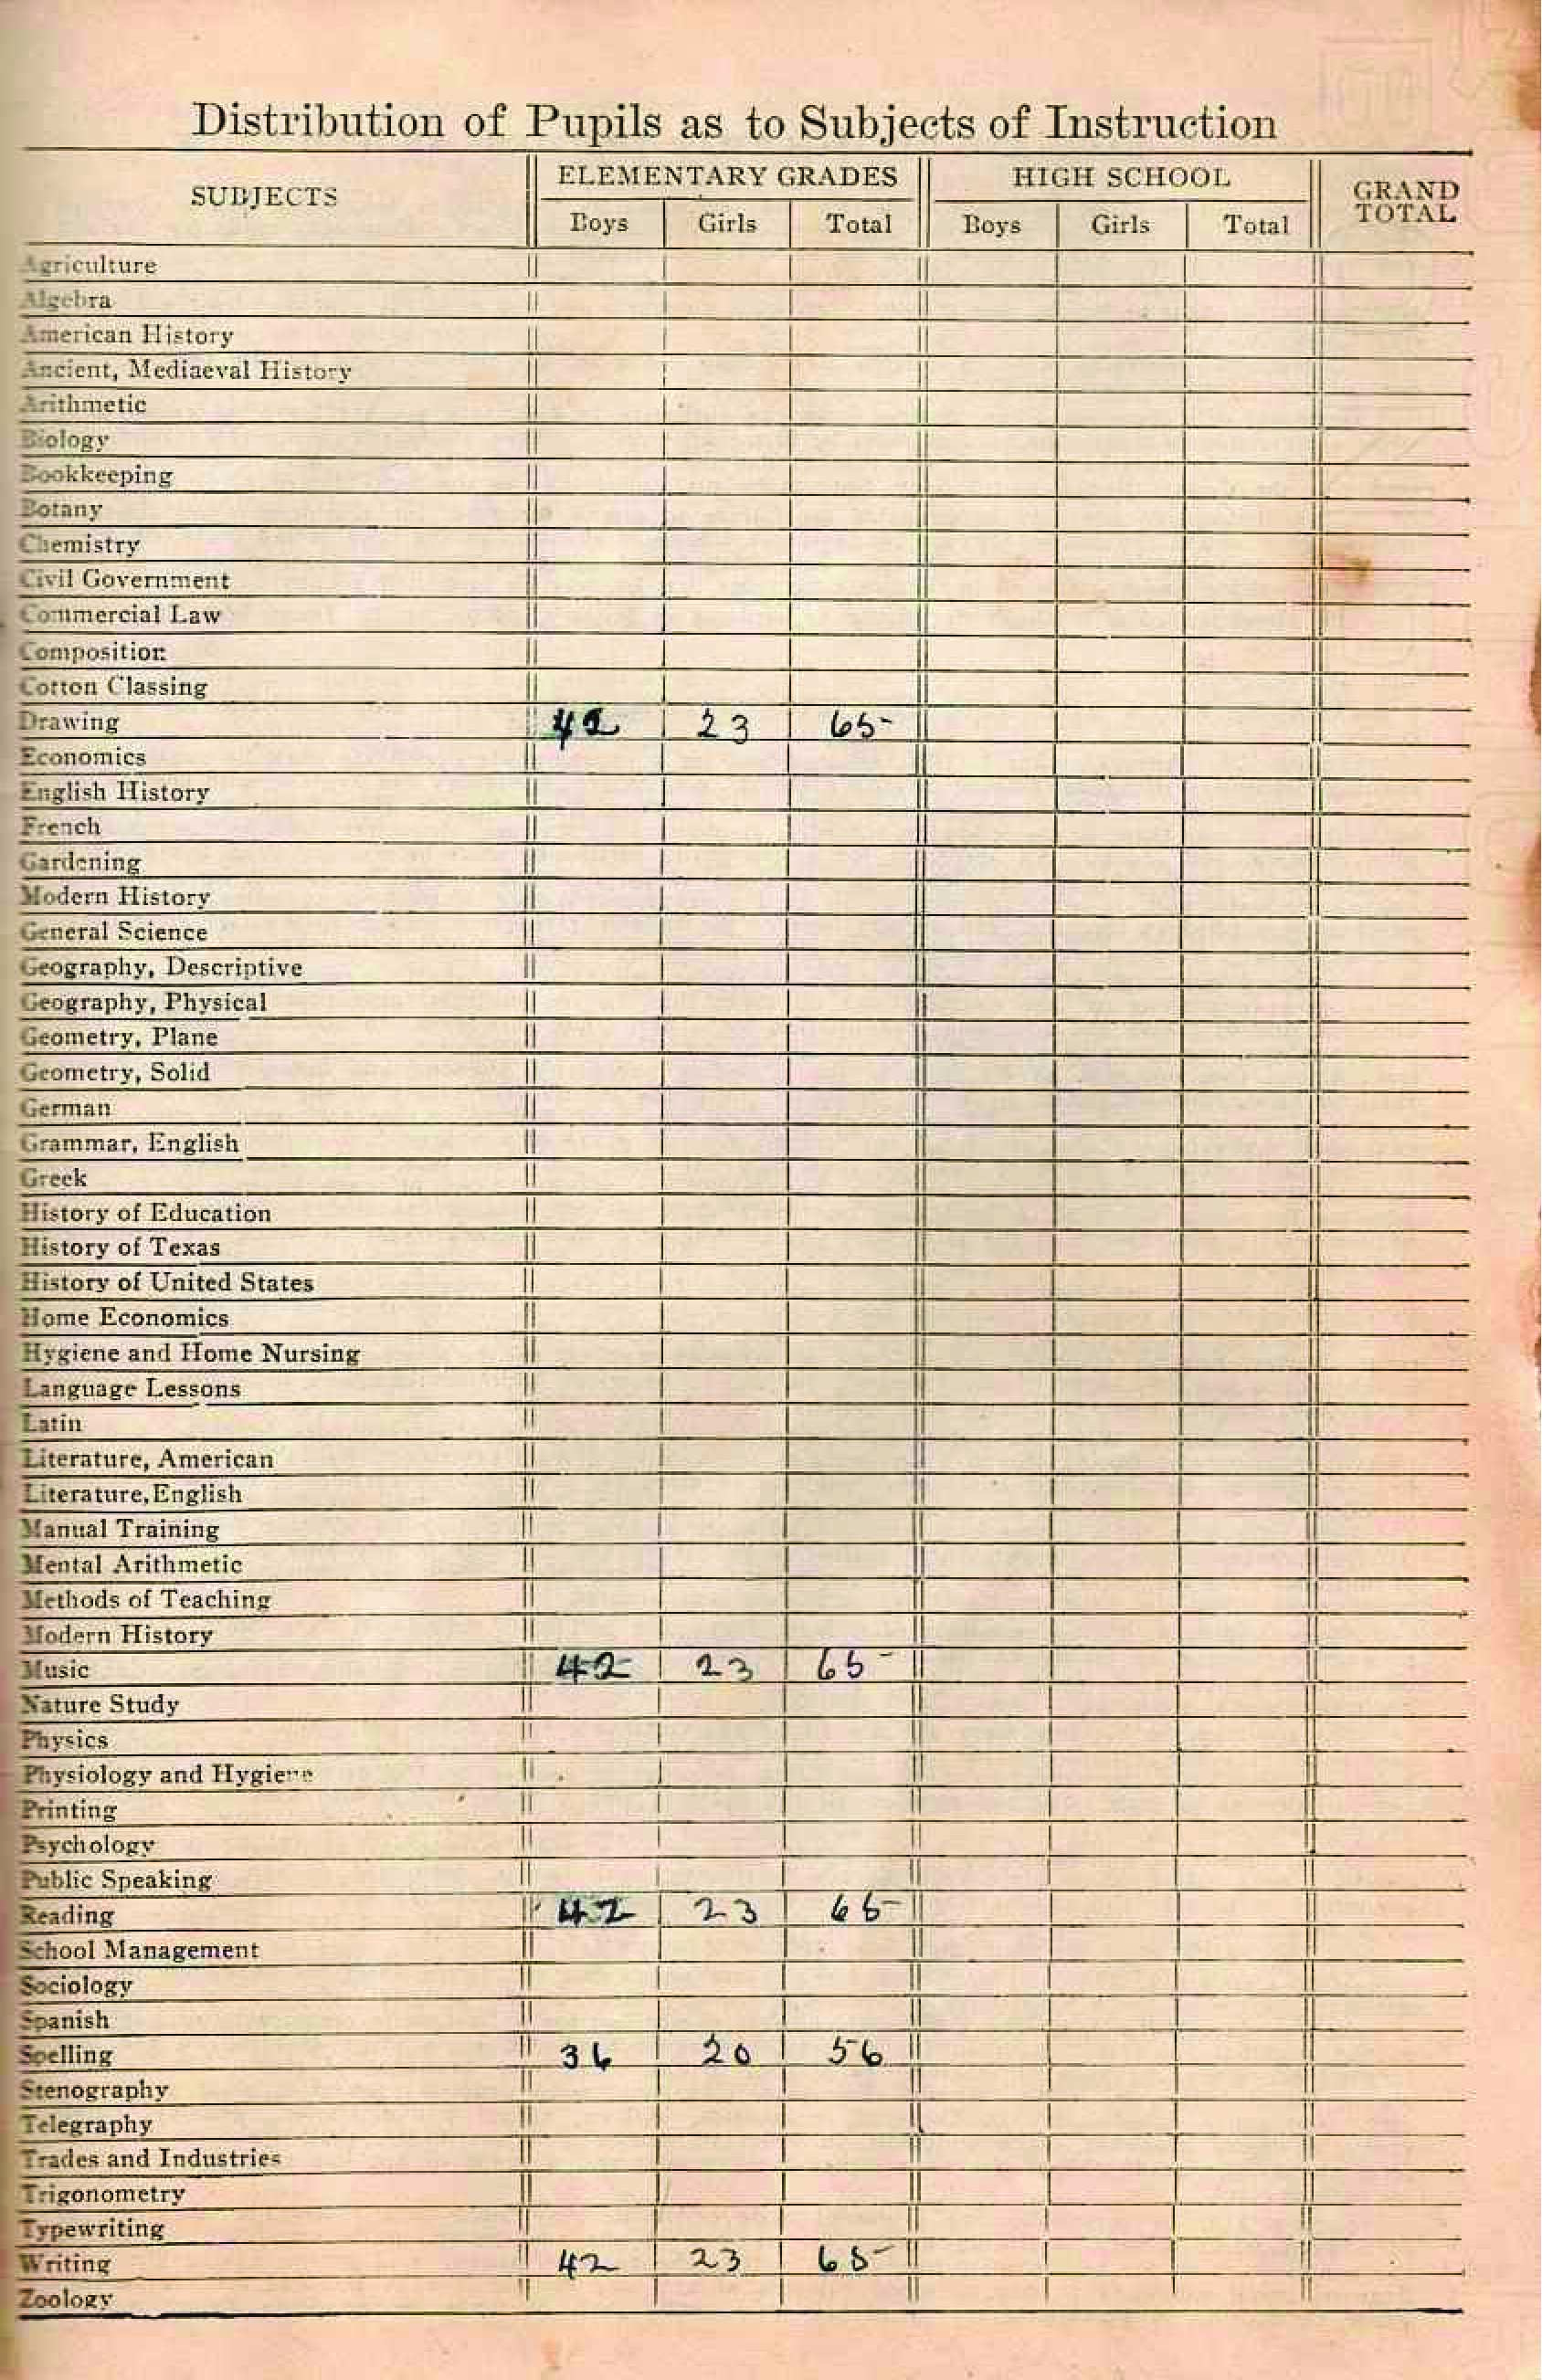 Distribution of Pupils as to Subjects of Instruction
SUBJECTS ELEMENTARY GRADES HIGH SCHOOL GRAND TOTAL
Boys Girls Total Boys Girls Total
Agriculture
Algebra
American History
Ancient, Mediaeval History
Arithmetic
Biology
Bookkeeping
Botany
Chemistry
Civil Government
Commercial Law
Composition
Cotton Classing
Drawing 42 23 65
Economics
English History
French
Gardening
Modern History
General Science
Geography, Descriptive
Geography, Physical
Geometry, Plane
Geometry, Solid
German
Grammar, English
Greek
History of Education
History of Texas
History of United States
Home Economics
Hygiene and Home Nursing
Language Lessons
Latin
Literature, American
Literature, English
Manual Training
Mental Arithmetic
Methods of Teaching
Modern History
Music 42 23 65
Nature Study
Physics
Physiology and Hygiene
Printing
Psychology
Public Speaking
Reading 42 23 65
School Management
Sociology
Spanish
Spelling 36 20 56
Stenography
Telegraphy
Trades and Industries
Trigonometry
Typewriting
Writing 42 23 65
Zoology